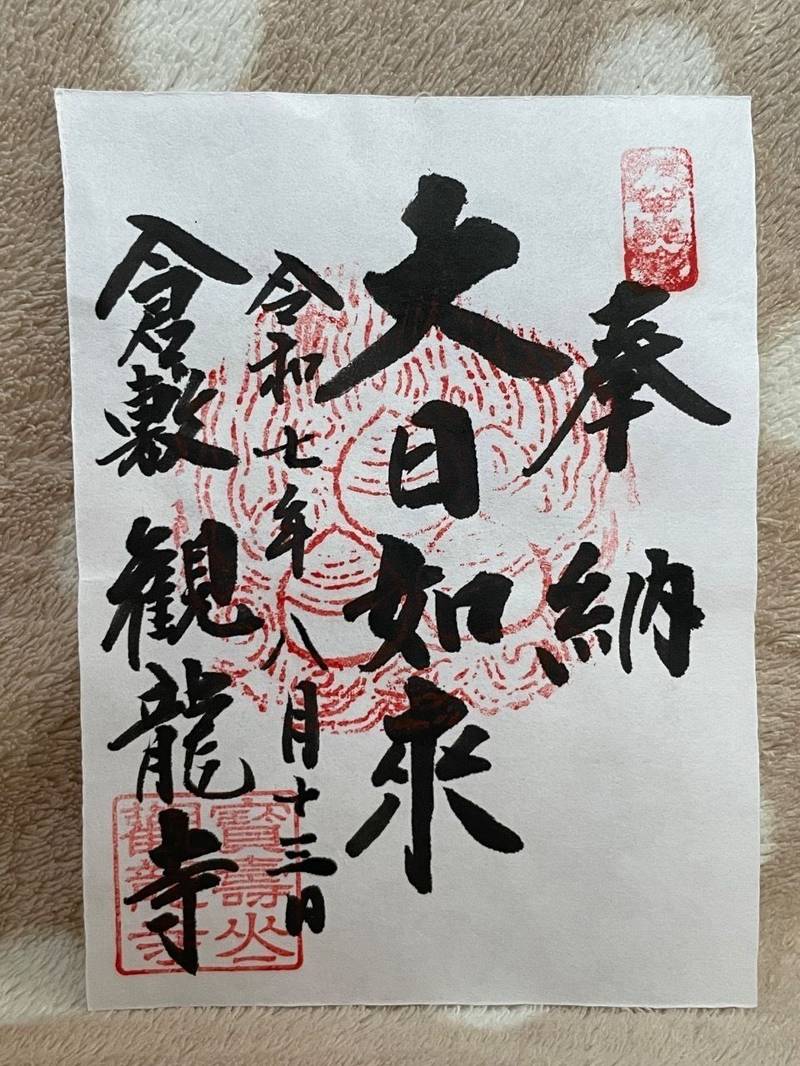 奉納
大日如来
令和七年八月十三日
倉敷観龍寺
寳壽山
觀龍寺